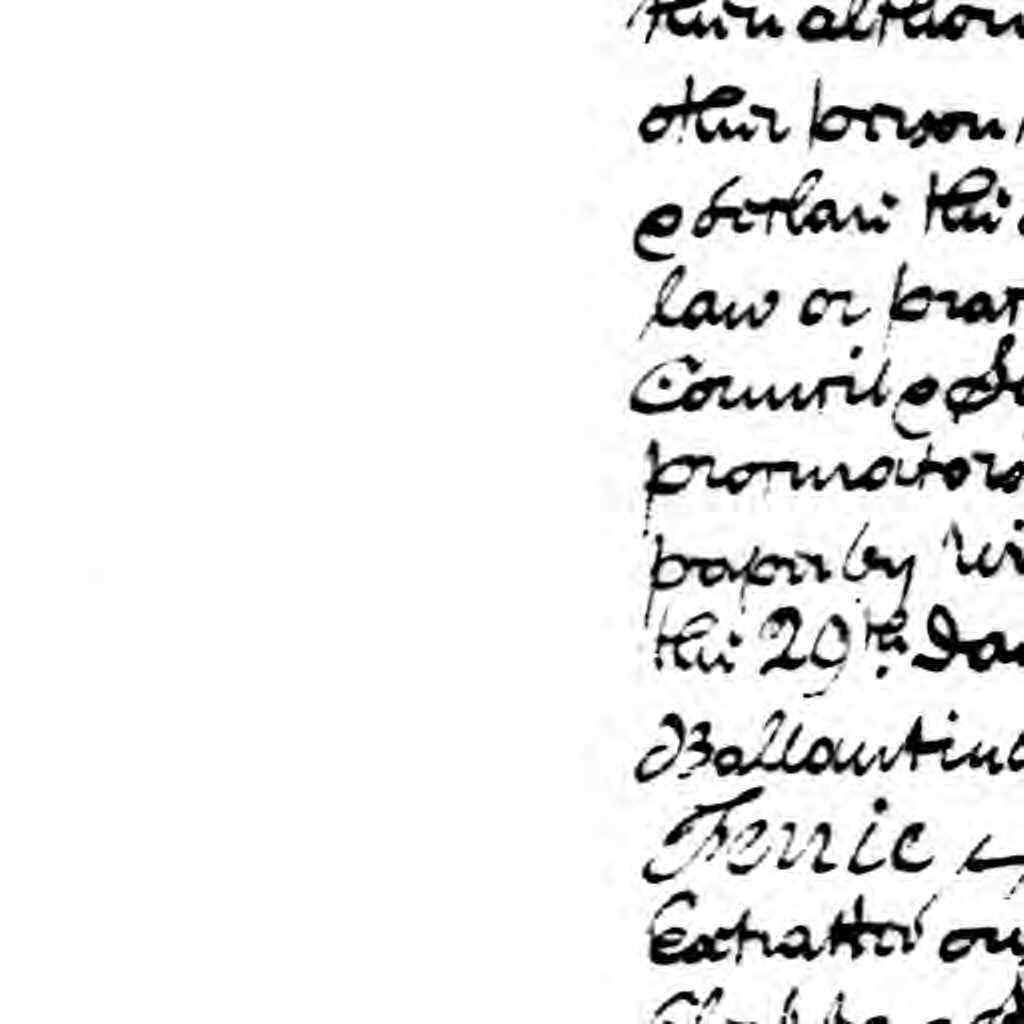 then althou
other person
& declare the
law or prac
Council & Se
procurators
paper by Wi
the 29th. Day
Ballantine
Ferrie
Extracted ou